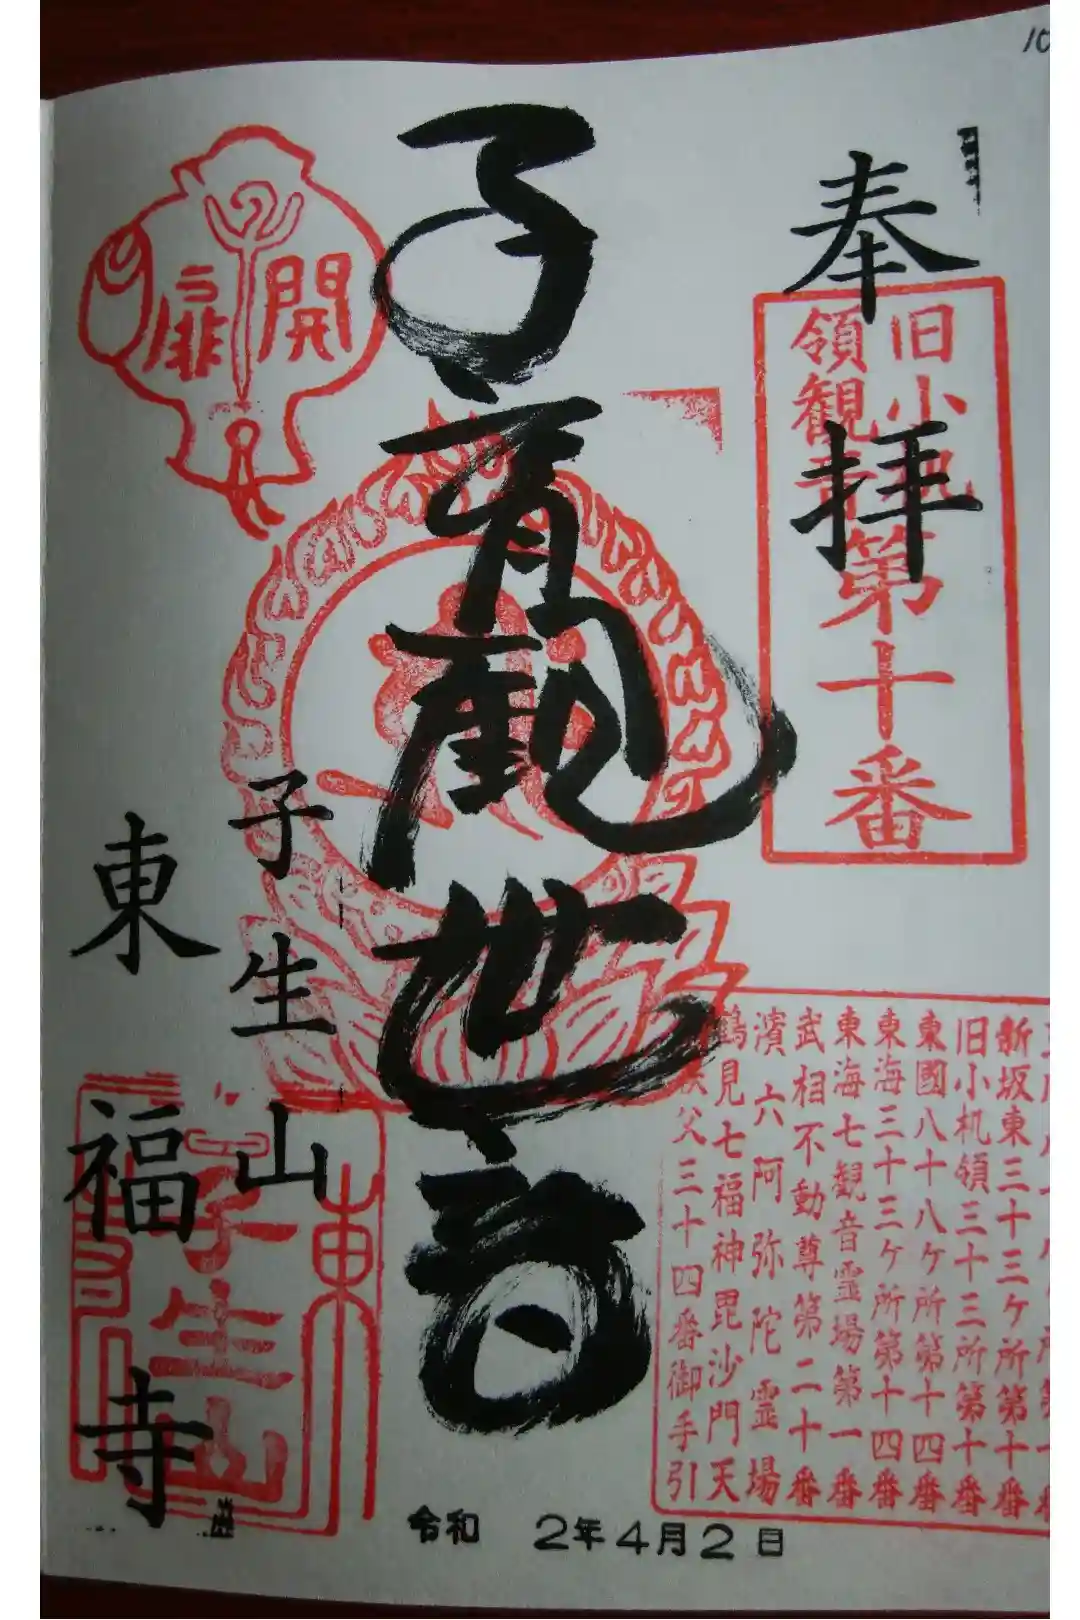 10
奉拝
旧小机
領観音
第十番
子育観世音
開扉
新坂東三十三ケ所第十番
旧小机領三十三所第十番
東國八十八ケ所第十四番
東海三十三ケ所第十四番
東海七観音霊場第一番
武相不動尊第二十番
濱六阿弥陀霊場
鶴見七福神毘沙門天
秩父三十四番御手引
子生山
東福寺
東
子生山
令和 2年4月2日